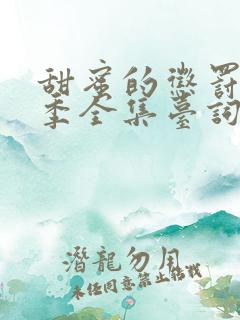 甜蜜的懲罰
季全集臺詞
潛龍勿用
未经同意禁止转载